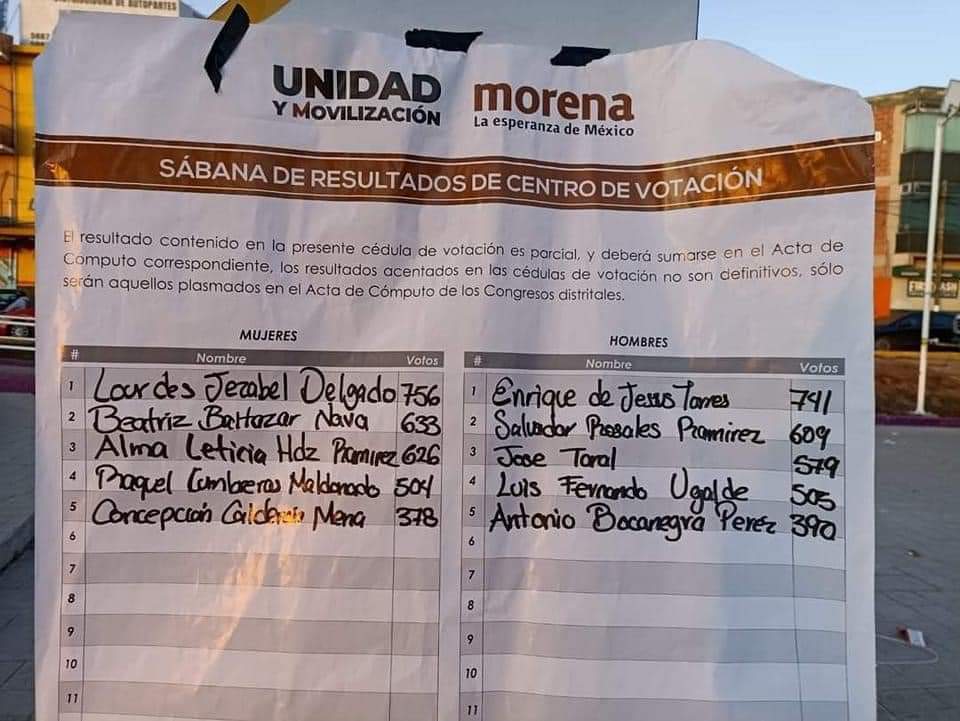 DISTRIBUIDORA DE AUTOPARTES
UNIDAD
Y MOVILIZACIÓN
morena
La esperanza de México
SÁBANA DE RESULTADOS DE CENTRO DE VOTACIÓN
El resultado contenido en la presente cédula de votación es parcial, y deberá sumarse en el Acta de
Cómputo correspondiente, los resultados acentados en las cédulas de votación no son definitivos, sólo
serán aquellos plasmados en el Acta de Cómputo de los Congresos distritales.
MUJERES
# Nombre Votos
1 Lourdes Jezabel Delgado 756
2 Beatriz Baltazar Nava 633
3 Alma Leticia Hdz Ramirez 626
4 Raquel Cumbreras Maldonado 504
5 Concepción Calderón Mena 378
6
7
8
9
10
11
HOMBRES
# Nombre Votos
1 Enrique de Jesus Torres 741
2 Salvador Rosales Ramirez 609
3 Jose Toral 579
4 Luis Fernando Ugalde 505
5 Antonio Bocanegra Perez 390
6
7
8
9
10
11